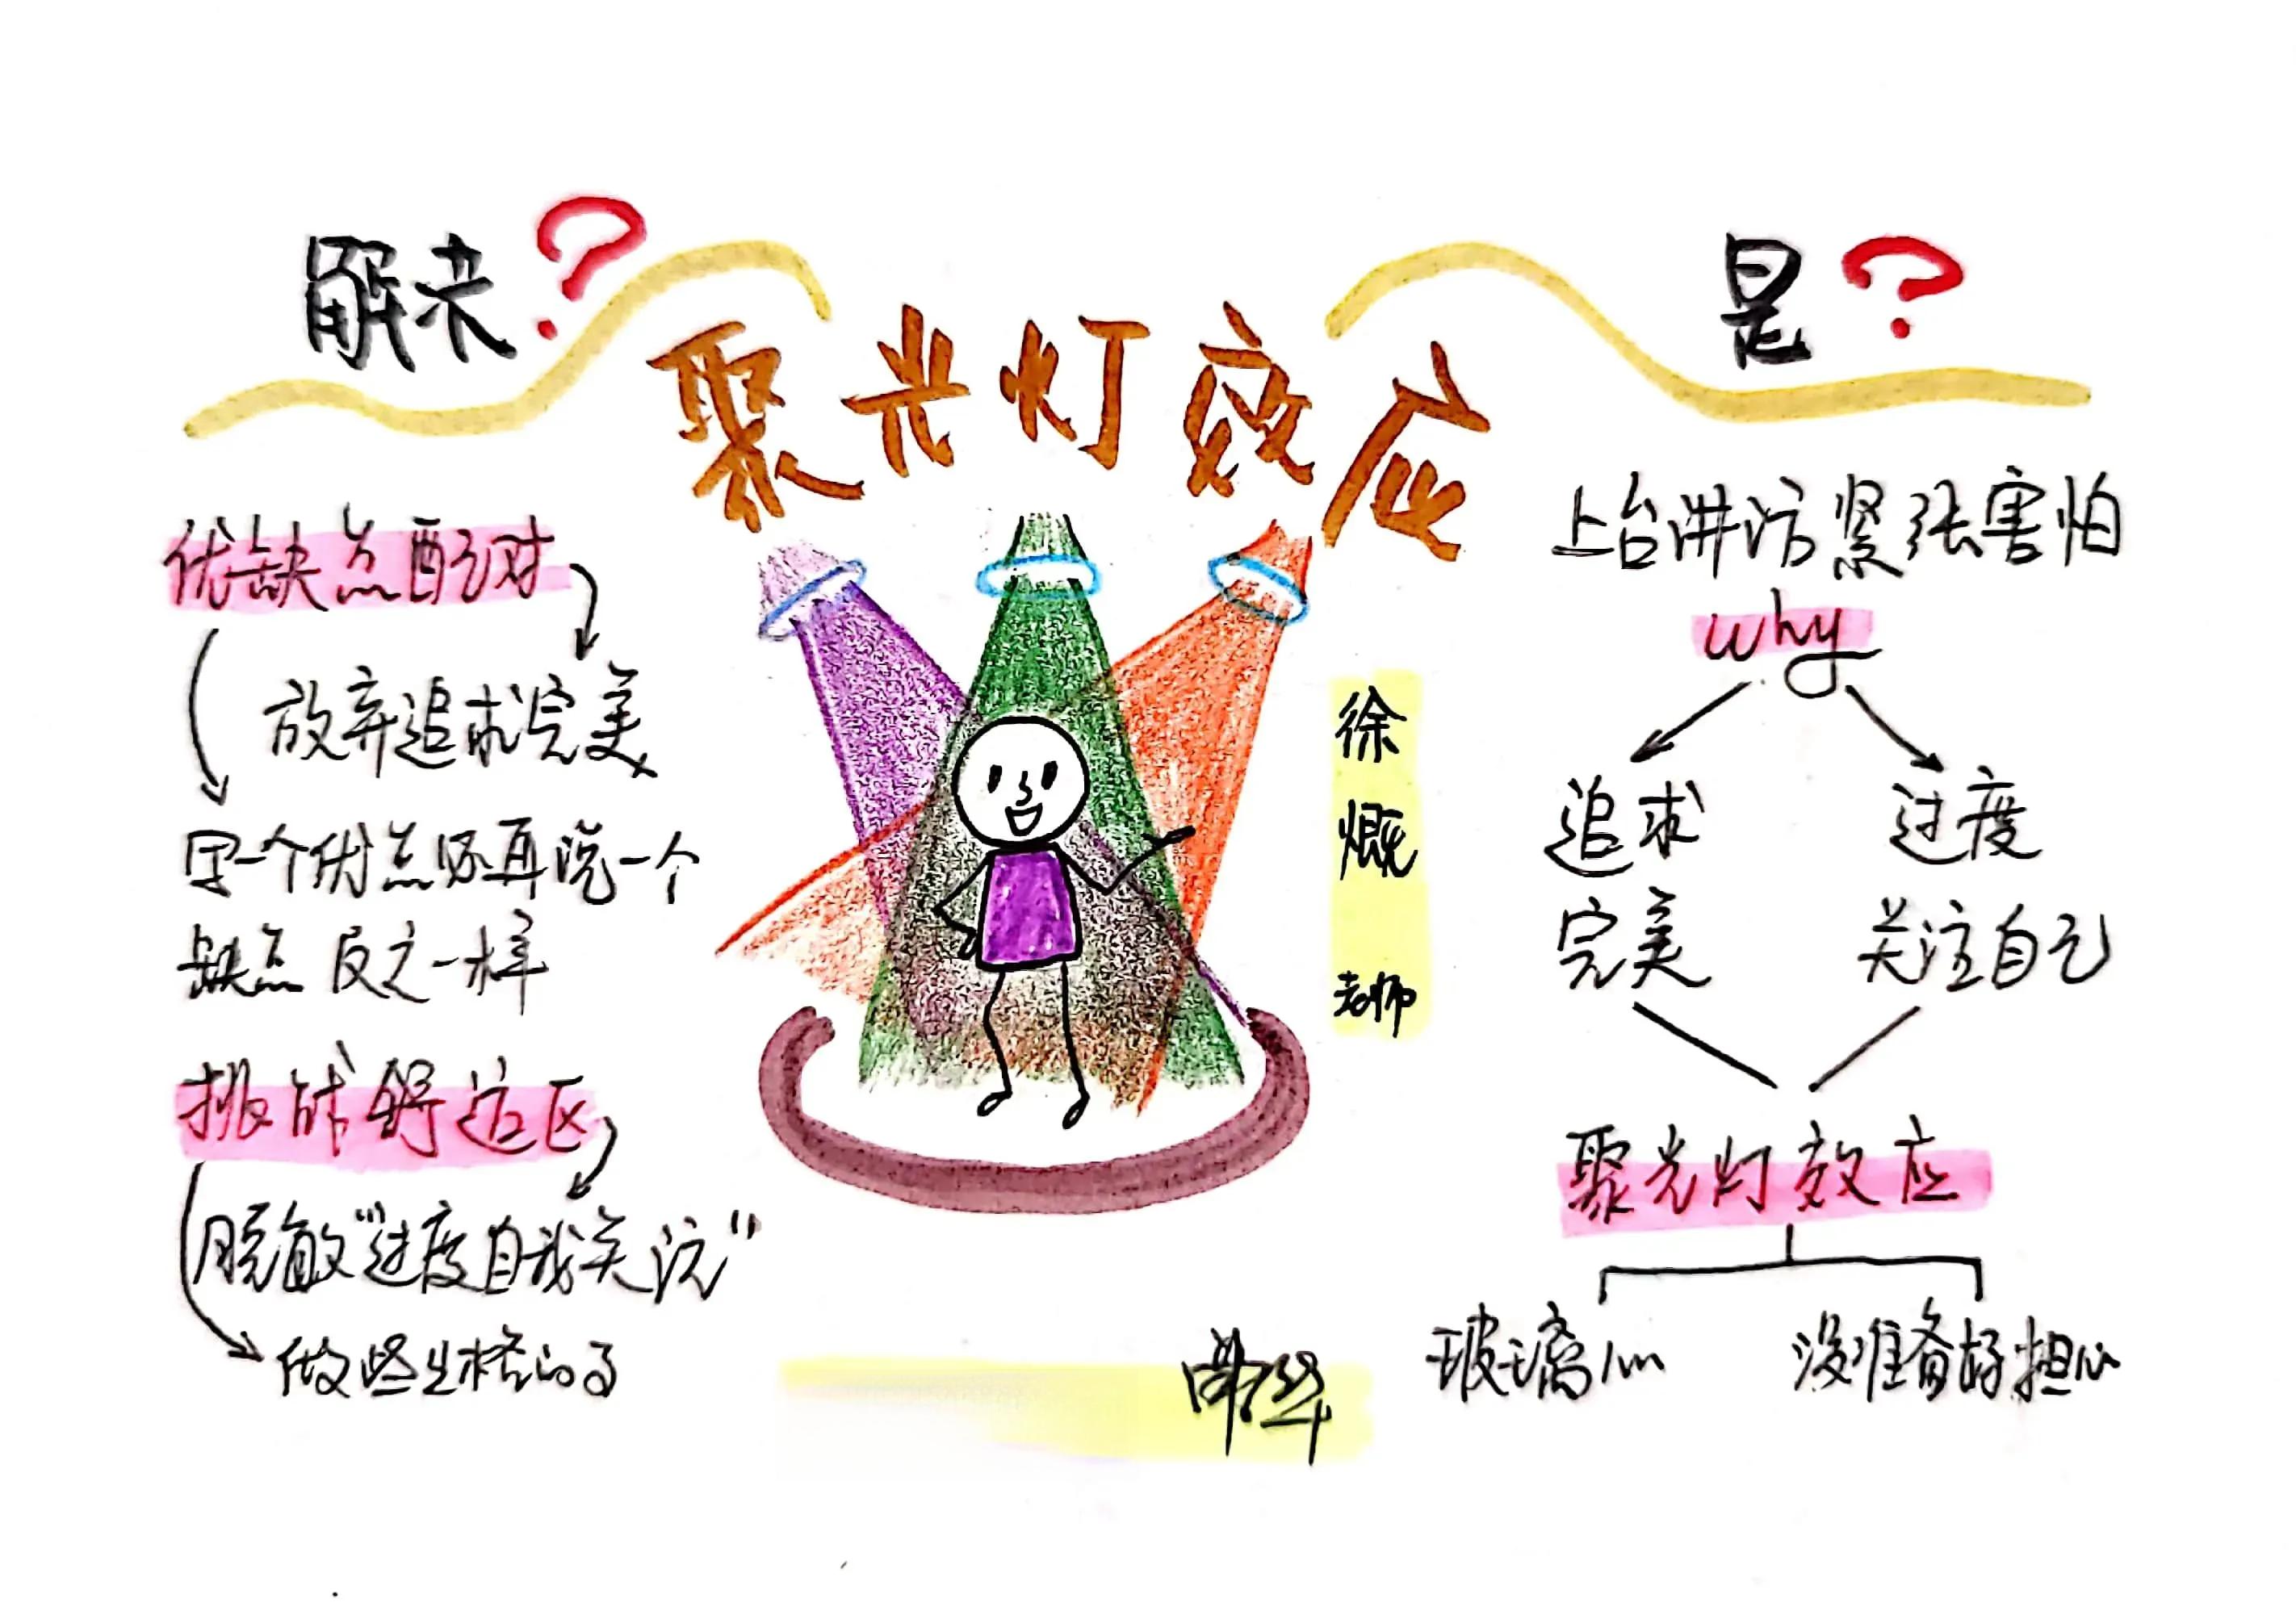 聚光灯效应
是?
上台讲话紧张害怕
why
追求
完美
过度
关注自己
聚光灯效应
玻璃心
没准备好担心
徐
慨
老师
解决?
优缺点配对
放弃追求完美
写一个优点后再说一个
缺点 反之一样
挑战舒适区
脱敏"过度自我关注"
做些出格的事